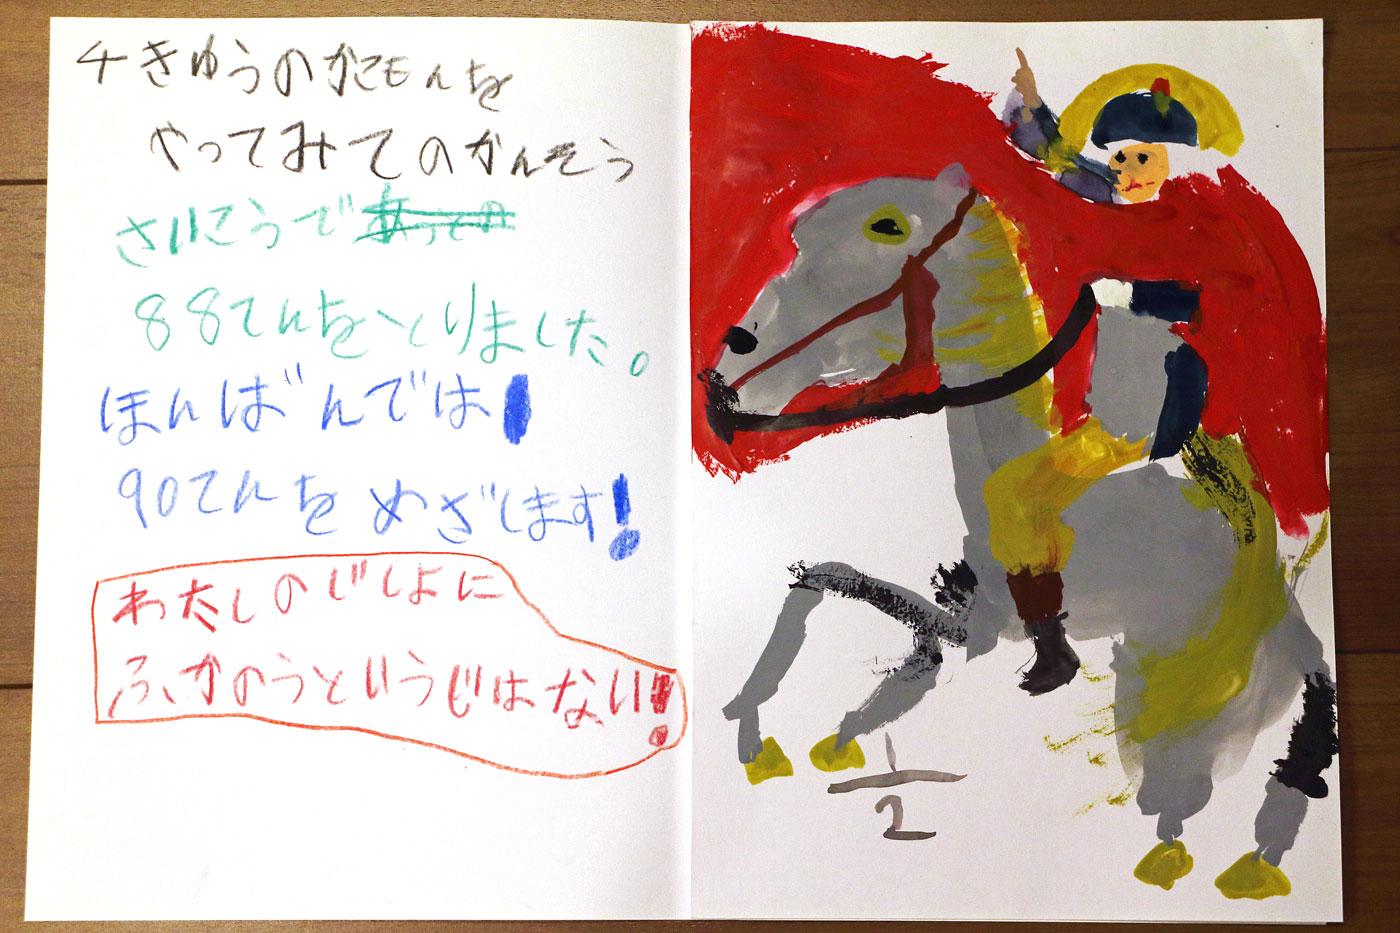 4きゅうのかこもんを
やってみてのかんそう
さいこうで
88てんをとりました。
ほんばんでは
90てんをめざします!
わたしのじしょに
ふかのうというじはない!
1
2